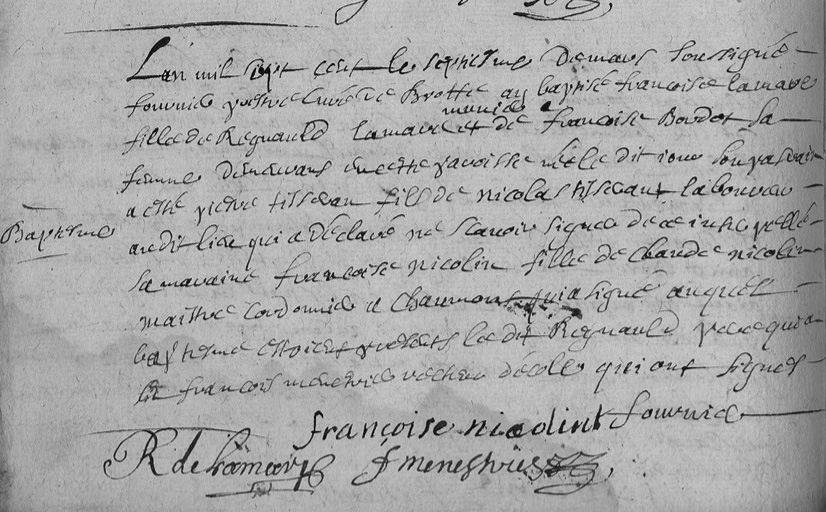 L'an mil sept cent le septiesme de mars soussigné
fournié prestre curé de Brotte ay baptisé francoise lamare
munié
fille de Regnauld lamare et de francoise Bordot sa
femme demeurans en cette paroisse née le dit jour son parain
a esté pierre tisseran fils de nicolas tisserant laboureur
Baptesme
audit lieu qui a déclaré ne scavoir signer de ce interpellé
sa maraine francoise nicolin fille de claude nicolin
maistre cordonnié a chaumont qui a signé auquel
baptesme estoient presents le dit Regnauld pere qui a
et francois menetrié recteur d'ecolle qui ont signes
françoise nicolint fournié
R delamare f menestrié